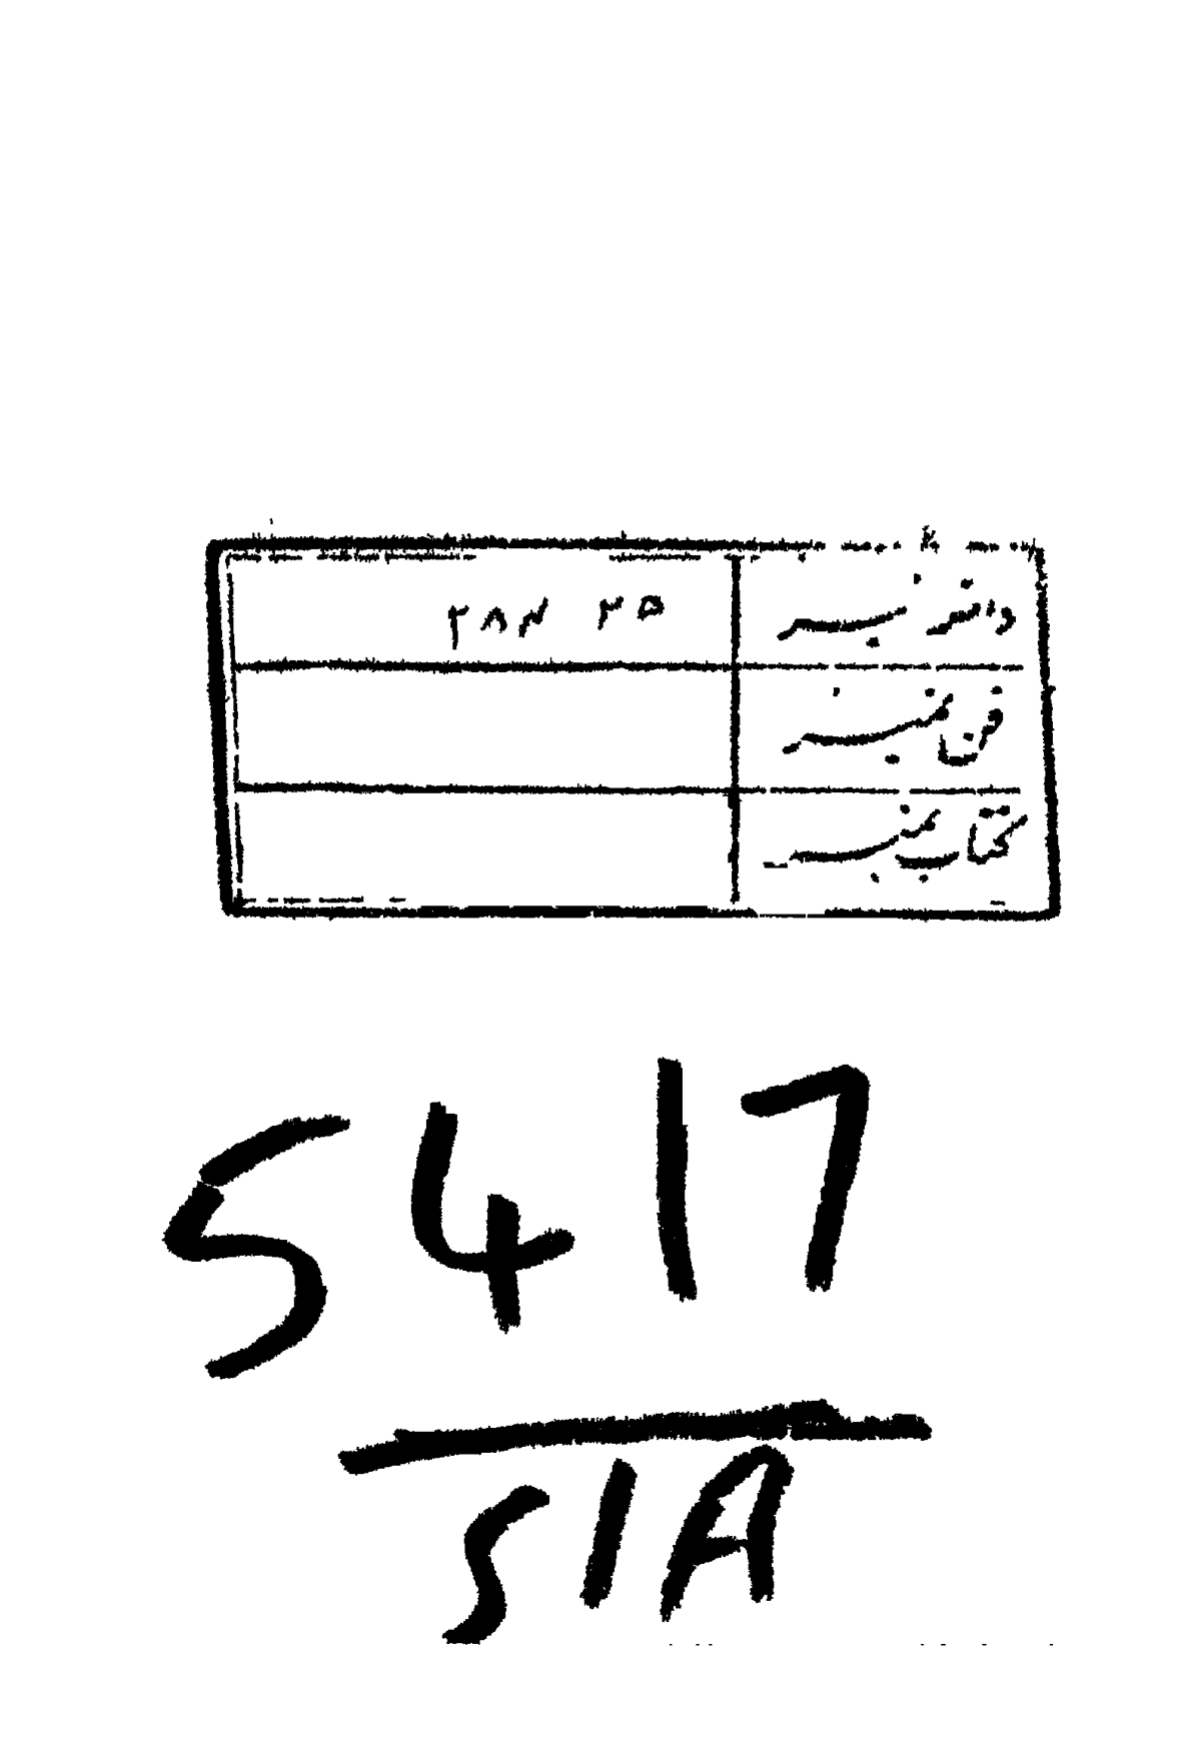 داخلہ نمبر
فن نمبر
کتاب نمبر
5417
SIA